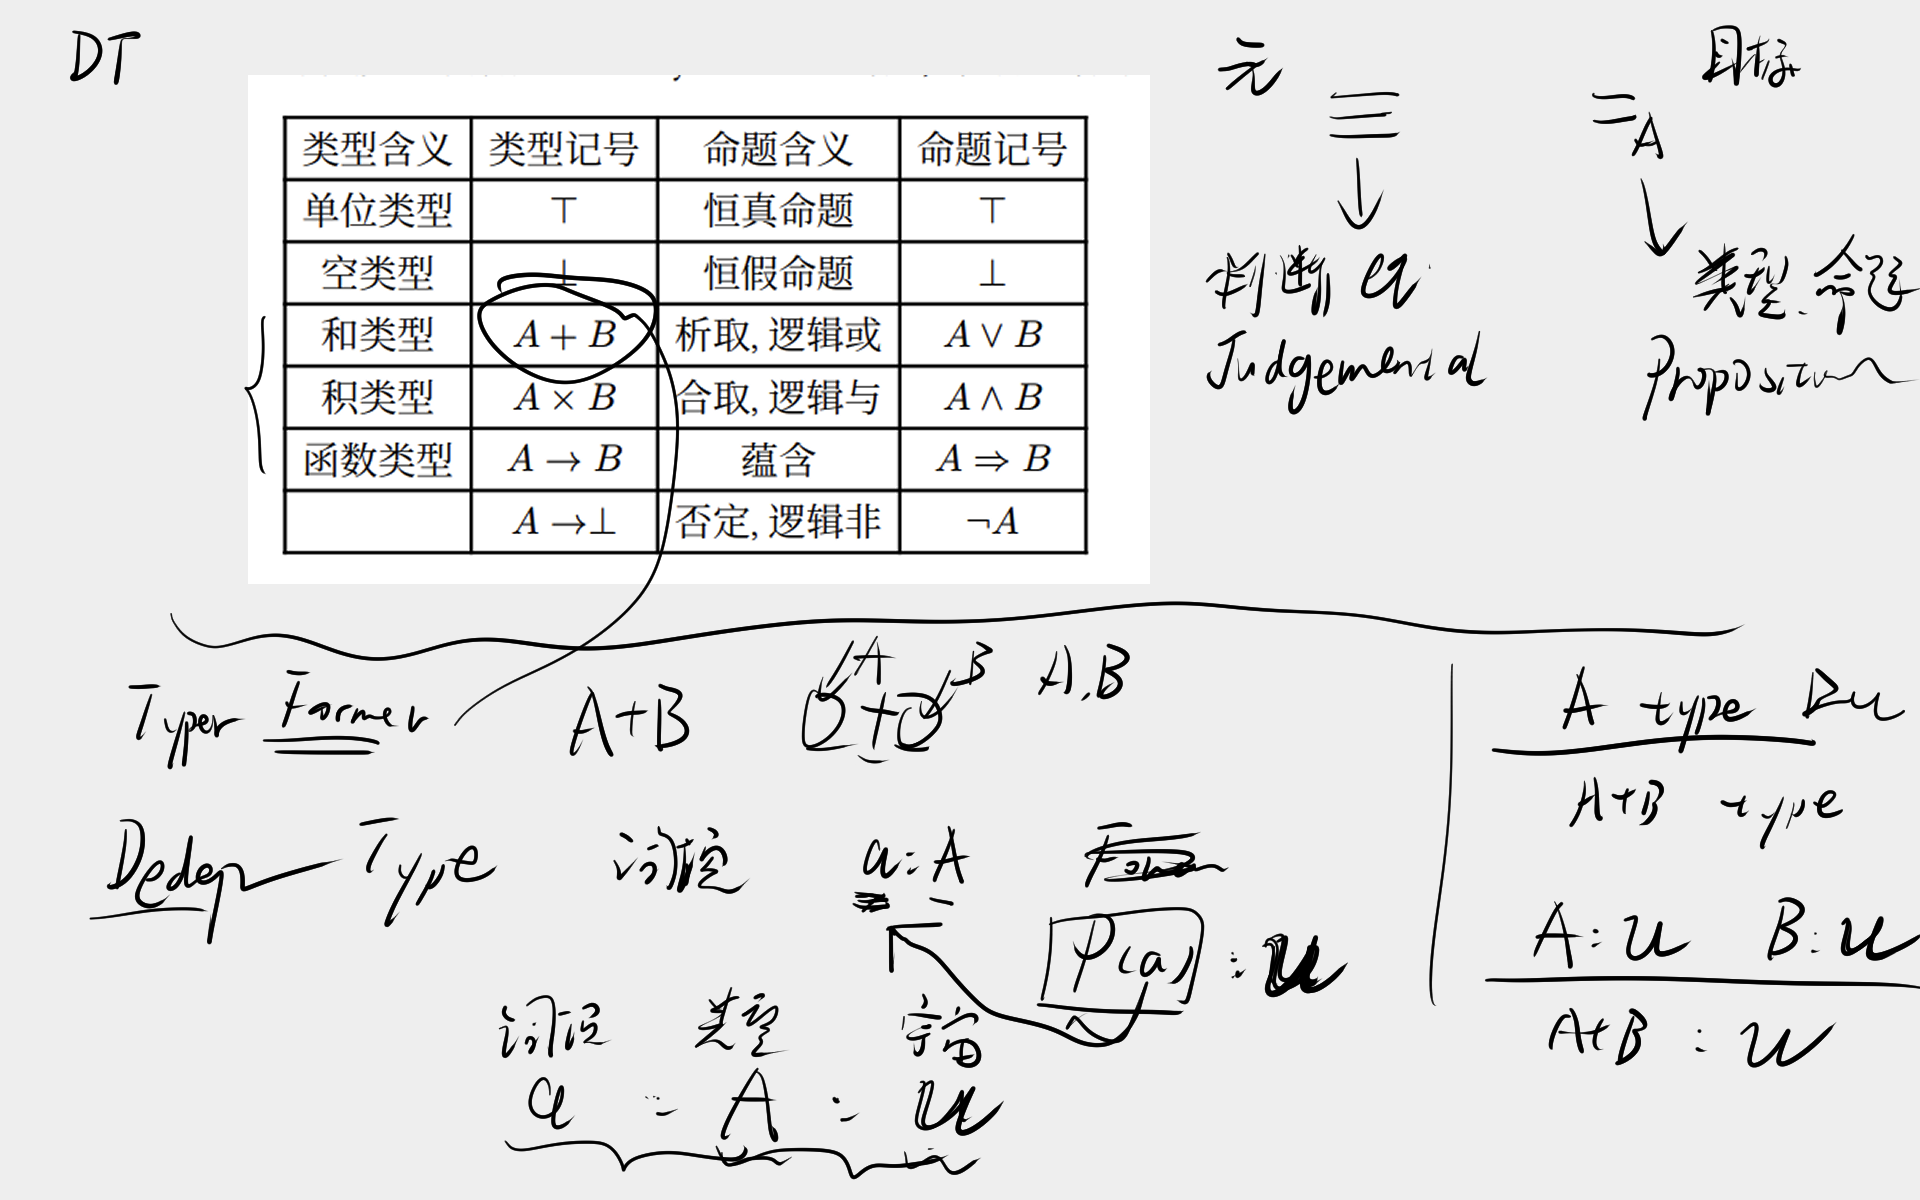 DT
类型含义 类型记号 命题含义 命题记号
单位类型 ⊤ 恒真命题 ⊤
空类型 ⊥ 恒假命题 ⊥
和类型 A + B 析取, 逻辑或 A ∨ B
积类型 A × B 合取, 逻辑与 A ∧ B
函数类型 A → B 蕴含 A ⇒ B
A →⊥ 否定, 逻辑非 ¬A
元 目标
≡ =A
判断 eq 类型.命题
Judgemental Proposition
Type Former A+B A B A,B
Type 词项 a:A
P(a) : U
词项 类型 宇宙
a : A : U
A type B
A+B type
A:U B:U
A+B : U